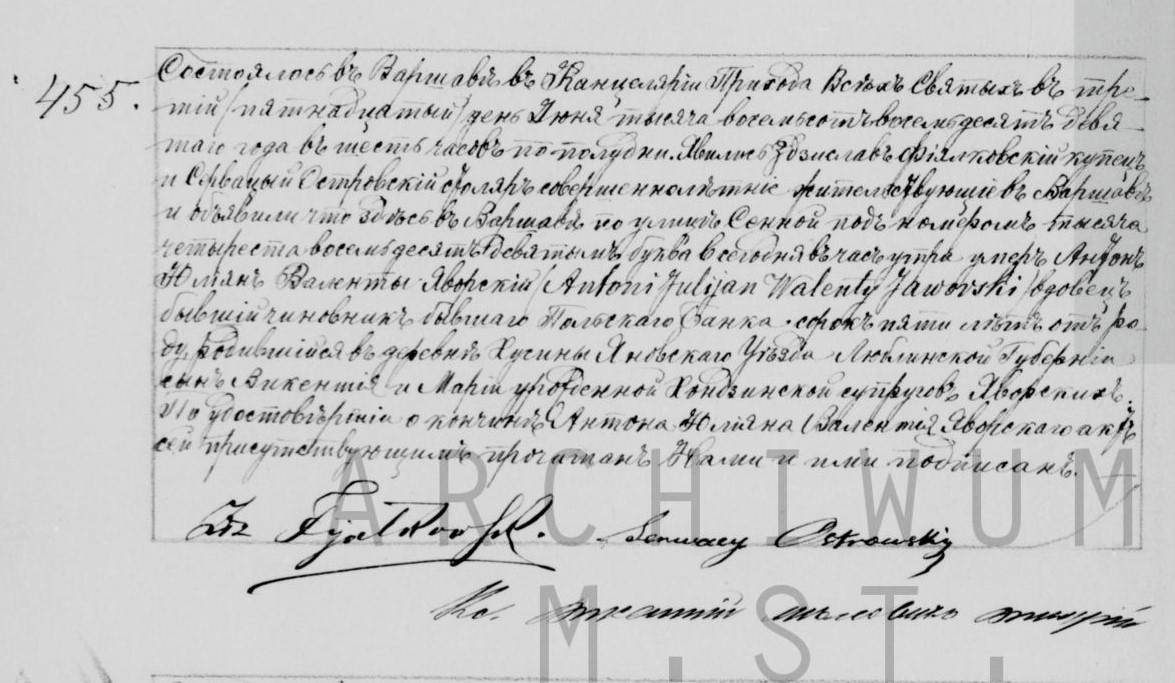 455.
Состоялось въ Варшавѣ въ Канцеляріи Прихода Всѣхъ Святыхъ въ тре-
тій /пятнадцатый/ день Іюня тысяча восемьсотъ восемьдесятъ девя-
таго года въ шесть часовъ по полудни. Явились Здзиславъ Фіялковскій купецъ
и Сервацый Островскій столяръ совершеннолѣтніе жительствующіе въ Варшавѣ
и объявили что здѣсь въ Варшавѣ по улицѣ Сенной подъ номеромъ тысяча
четыреста восемьдесятъ девятымъ буква в сегодня въ часъ утра умеръ Антонъ
Юліянъ Валенты Яворскій /Antoni Julijan Walenty Jaworski/ вдовецъ
бывшій чиновникъ бывшаго Польскаго Банка сорокъ пяти лѣтъ отъ ро-
ду, родившійся въ деревнѣ Хусины Яновскаго Уѣзда Люблинской Губерніи
сынъ Викентія и Маріи урожденной Хондзинской супруговъ Яворскихъ.
По удостовѣреніи о кончинѣ Антона Юліяна Валентія Яворскаго актъ
сей присутствующимъ прочитанъ Нами и ими подписанъ.
Zdz Fijałkowski. Serwacy Ostrowski
Кс.
ARCHIWUM
M.ST.